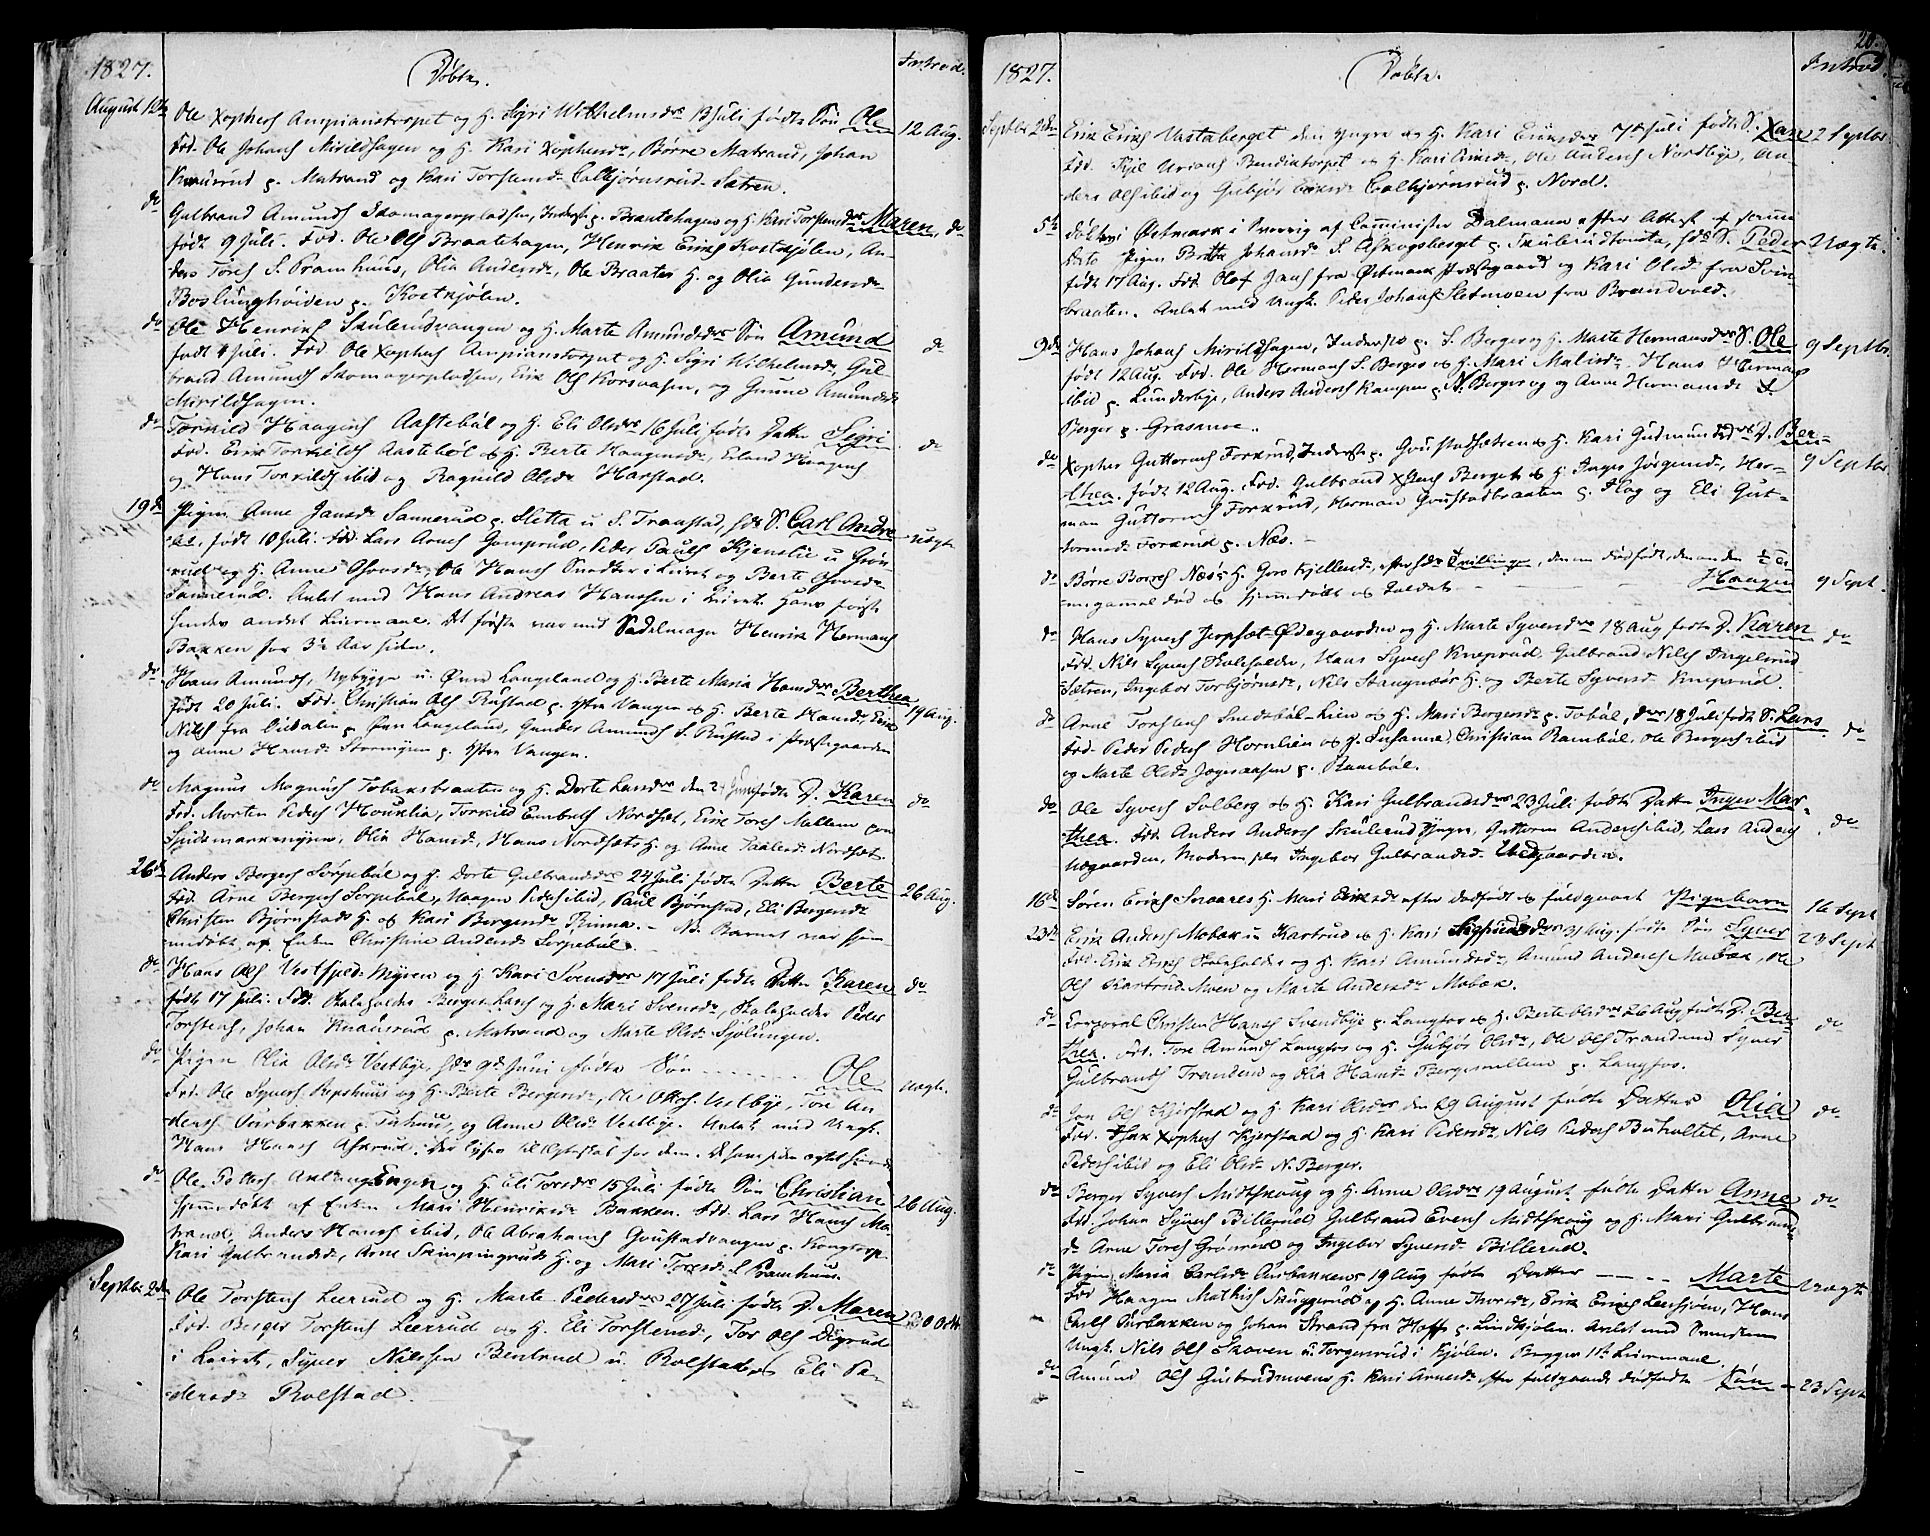 1827. Døbte. Introd.
August 12te Ole Xophers Ampianstorpet og H. Sigri Wilhelmsdr 13 Juli fødte Søn Ole 12 Aug.
Fad. Ole Johans Mirildhagen og H. Kari Xophersdr, Børre Matrand, Johan
Knausrud p. Matrand og Kari Torstensdr Calbjørnsrud-Sætren.
do Gulbrand Amunds Skomagerpladsen, Inderst p. Braatehagen og H. Kari Torstensdr Maren do
født 9 Juli. Fad. Ole Ols Braatehagen, Henrik Eriks Kostkjølen, An-
ders Tores S. Pramhuus, Olia Andersdr, Ole Braaten H. og Olia Gundersdr
Boslunghøiden p. Kostkjølen.
do Ole Henriks Skulerudvangen og H. Marte Amundsdr Søn Amund do
født 4 Juli. Fad. Ole Xophers Ampianstorpet og H. Sigri Wilhelmsdr, Gul-
brand Amunds Skomagerpladsen, Erik Ols Korsaasen, og Gunne Amundsdr
Mirildhagen.
do Torkild Haagens Aastebøl og H. Eli Olsdr 16 Juli fødte Datter Sigri do
Fad. Erik Torkilds Aastebøl og H. Berte Haagensdr, Erland Haagens
og Hans Torkilds ibid og Ragnild Olsdr Harstad.
19de Pigen Anne Jansdr Sannerud p. Sletta u. S. Traustad, hds S. Carl Andre- uægte
as, født 10 Juli. Fad. Lars Arnes Gomprud, Peder Pauls Kjenslie u. Grøn-
rud og H. Anne Ovesdr, Ole Hans Snedker i Leiret og Berte Ovesdr
Sannerud. Avlet med Hans Andreas Hanssen i Leiret. Hans første
hendes andet Leiermaal. Det første var med Sadelmager Henrik Hermans
Bakken for 3de Aar siden.
do Hans Amunds, Nybygge u. Øvre Langeland og H. Berte Maria Hansdr Berthea 19 Aug.
født 20 Juli. Fad. Christian Ols Rustad p. østre Vangen og H. Berte Hansdr, Erik
Nils fra Eidalen p. Øvr Langeland, Gunder Amunds S. Rustad i Præstegaarden
og Anne Hansdr Stormyren p. østre Vangen.
do Magnus Magnus Tobaksbraaten og H. Dorte Larsdr den 2 Juni fødte D. Karen do
Fad. Morten Peders Houklia, Torkild Embrets Nordset, Erik Tores Mellem
myren, Olia Hansdr, Hans Nordsets H. og Anne Paalsdr Nordset.
26de Anders Bergers Sørpebøl og H. Dorte Gulbrandsdr 24 Juli fødte Datter Berte 26 Aug.
Fad. Arne Bergers Sørpebøl, Haagen Peders ibid, Paul Bjørnstad, Eli Bergersdr
Christen Bjørnstads H. og Kari Bergersdr Rinna. - NB. Barnet var hjem-
medøbt af Enken Christine Andersdr Sørpebøl.
do Hans Ols Vestsped-Myren og H. Kari Svensdr 17 Juli fødte Datter Karen do
født 17 Juli. Fad. Skoleholder Berger Lars og H. Mari Svensdr, Skoleholder Peder
Torstens, Johan Knausrud p. Matrand og Marte Olsdr Sjølungen.
do Pigen Olia Olsdr Vestbye, hds 9de Juni fødte Søn - - - Ole uægte.
Fad. Ole Syvers Repshuus og H. Berte Bergersdr, Ole Ottos. Vestbye, Tore An-
ders Ousbakken p. Tuhuus, og Anne Olsdr Vestbye. Avlet med Ungk.
Hans Hans Askerud.
do Ole Peders Aaslang-Engen og H. Eli Toresdr 15 Juli fødte Søn Christian 26 Aug.
hjemmedøbt af Enken Mari Henriksdr Bakken. Fad. Lars Hans Ma-
trand, Anders Hans ibid, Ole Abrahams Goustadvangen p. Kongtorp
Kari Gulbrandsdr, Arne Skimpingruds H. og Mari Toresdr S. Pramhuus.
Septbr 2den Ole Torstens Leerrud og H. Marte Pedersdr 27 Juli fødte D. Maren 30 Octbr
Fad. Berger Torstens Leerrud og H. Eli Torstensdr, Tor Ols Digerud
i Leiret, Syver Nilssen Bentrud u. Rolstad og Eli Pe-
dersdr Rolstad.
20.
1827. Døbte. Introd.
Septbr 2den Erik Eriks Vastaberget den yngre og H. Kari Eriksdr 7de Juli fødte S. Xan 2 Septbr
Fad. Kjel Urians Bendiktorpet og H. Kari Eriksdr, Ole Anders Nordbye, An-
ders Ols ibid og Gubjør Eriksdr Calbjørnsrud p. Nord.
5te døbt i Østmark i Sverrig af Comminister Dalmann efter Attest af samme
dato Pigen Britta Johansdr S. Askogsberget p. Skulerudtomta, hds S. Peder Uægte.
født 17 Aug. Fad. Olof Jans fra Østmark Præstegaard og Kari Olsdr fra Svin-
braaten. Avlet med Ungk. Peder Johans Sletmoen fra Brandvold.
9de Hans Johans Mirildhagen, Inderst p. S. Berger og H. Marte Hermansdr S. Ole 9 Septbr.
født 12 Aug. Fad. Ole Hermans S. Berger og H. Mari Matisdr, Hans Hermans
ibid p. Lunderbye, Anders Anders Kampen p. N. Berger og Anne Hermansdr S.
Berger p. Grasmoe.
do Xopher Guttorms Forkrud, Inderst p. Goustadsætren og H. Kari Gudmundsdr D. Ber- 9 Septbr
thea. født 12 Aug. Fad. Gulbrand Xophers Berget og H. Inger Jørgensdr, Her-
man Guttorms Forkrud, Herman Goustadbraaten p. Hag og Eli Gut-
tormsdr Forkrud p. Næs.
do Børre Borres Næs's H. Goro Kjellsdr, efter hds Tvillinger, den ene dødfødt, den anden
megamel død og hjemmedøbt og kaldet - - Haagen 9 Sept.
do Hans Syvers Jerpset-Ødegaarden og H. Marte Syversdr 18 Aug fødte D. Karen do
Fad. Nils Syvers Skoleholder, Hans Syvers Kneprud, Gulbrand Nils Ingelsrud
Sætren, Ingebor Torbjørnsdr, Nils Stangnæs's H. og Berte Syversdr Kneprud.
do Arne Torstens Smedsbøl-Lien og H. Mari Bergersdr p. Tobøl, 18 Juli fødte S. Lars do
Fad. Peder Peders Hornlien og H. Susanne, Christian Rambøl, Ole Bergers ibid
og Marte Olsdr Jøgeraasen p. Rambøl.
do Ole Syvers Solberg og H. Kari Gulbrandsdr 23 Juli fødte Datter Inger Mar- do
thea. Fad. Anders Anders Skulerud yngre, Guttorm Anders ibid, Lars Anders
Uægaarden, Moderen selv Ingebor Gulbrandsdr Uægaarden.
16de Søren Eriks Snaares H. Mari Eriksdr efter dødfødt og fuldgaaet Pigebarn 16 Sept
23de Erik Anders Mobæk u. Kastrud og H. Kari Sigfridsdr 31 Aug. fødte Søn Syver 23 Sept
Fad. Erik Eriks Skoleholder og H. Kari Amundsdr, Amund Anders Mobæk, Ole
Ols Kastrud-Moen og Marte Andersdr Mobæk.
do Corporal Christen Hans Svendbye p. Langfos og H. Berte Olsdr 26 Aug fødte D. Ber- do
thea. Fad. Tore Amunds Langfos og H. Gubjør Olsdr, Ole Ols Tranden Syver
Gulbrands Tranden og Olia Hansdr Bergermellem p. Langfos.
do Jon Ols Kjerstad og H. Kari Olsdr den 29 August fødte Datter Olia do
Fad. Isak Xophers Kjerstad og H. Kari Pedersdr, Nils Peders Buholtet, Arne
Peders ibid og Eli Olsdr N. Berger.
do Berger Syvers Midtskoug og H. Anne Olsdr 19 August fødte Datter Anne do
Fad. Johan Syvers Billerud, Gulbrand Evens Midtskoug og H. Mari Gulbrands-
dr Arne Tores Grønrud og Ingebor Syversdr Billerud.
do Pigen Maria Carlsdr Ousbakken 19 Aug fødte Datter - - - Marte Uægte
Fad Haagen Mathis Skuggerud og H. Anne Thorsdr, Erik Eriks Leesjøen, Hans
Carls Ousbakken og Johan Strand fra Hoff p. Lindkjølen. Avlet med Svendsken
Ungk. Nils Ols Skoven u. Torgersrud i Kjølen. Begges 1ste Leiermaal.
do Amund Ols Gustrudmoens H. Kari Arnesdr efter fuldgaaede dødfødte Søn - 23 Sept